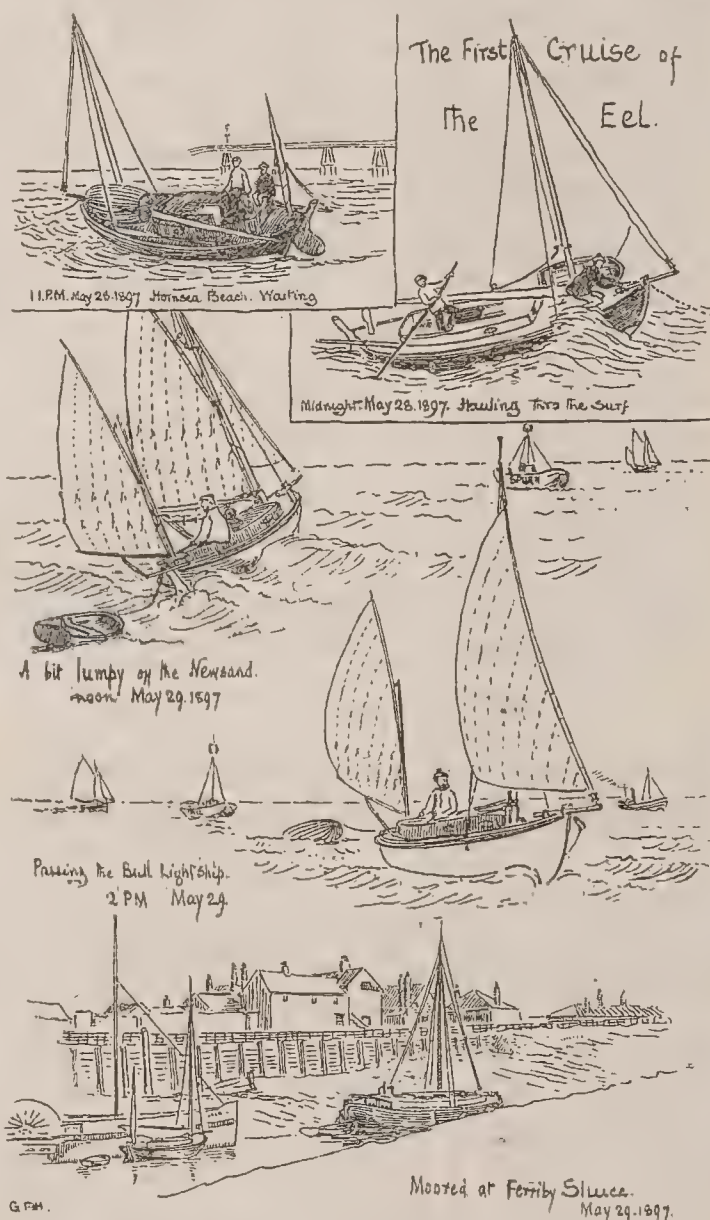 The First Cruise of
the Eel.
11.P.M. May 28.1897 Hornsea Beach. Waiting
Midnight. May 28.1897. Hauling thro the Surf
SPURN
A bit lumpy on the Newsand.
noon May 29.1897
Passing the Bull Lightship.
2 PM May 29.
Moored at Ferriby Sluice.
May 29.1897.